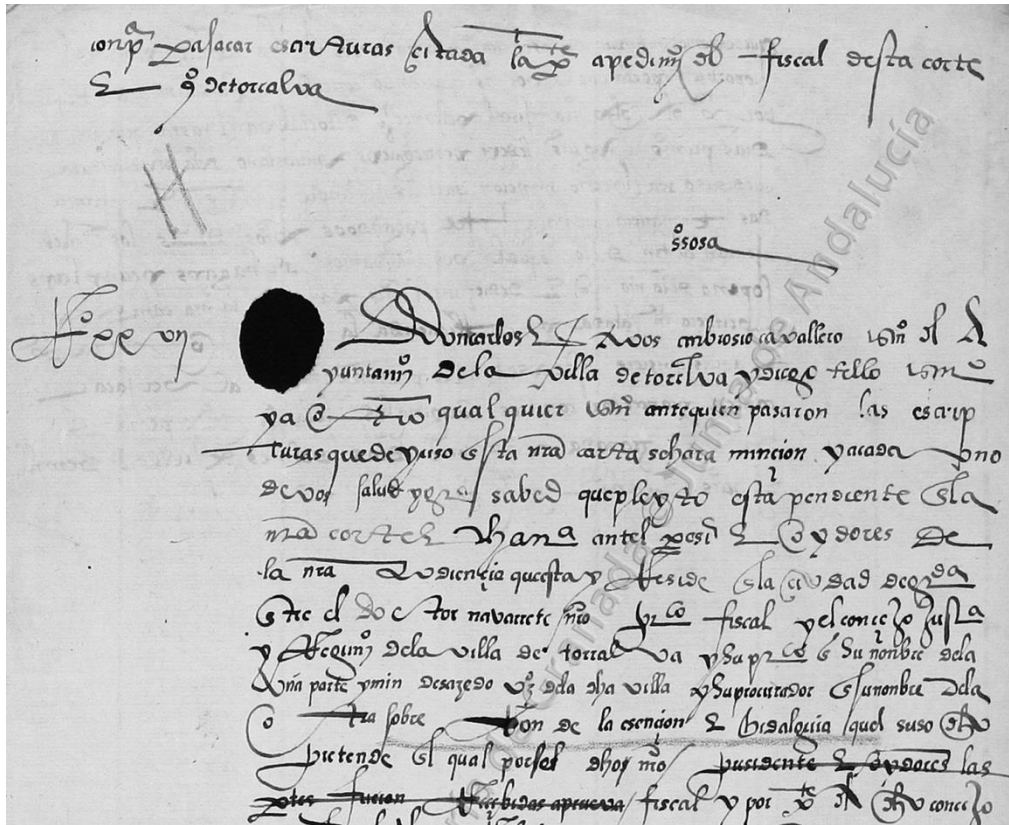 conp. pa sacar escrituras citada la pte a pedimio del fiscal desta corte
E qo de torralva
ssosa
Ro e e vn
Don carlos E A vos ambrosio cavallero scriuo del A
yuntamio de la villa de torralva y diego tello scriuo
y a otro qual quier scriuo ante quien pasaron las escrip
turas que de yuso esta nra carta se hara mincion y a cada vno
de vos salud y gra sabed que pleyto esta pendiente en la
nra corte E chanª antel presi E oydores de
la nra audiençia que esta y Reside en la ciudad de grda
entre el doctor navarrete nro prco fiscal y el concejo justª
y Regimio de la villa de torralva y su prcor en su nonbre de la
vna parte y min desazedo vzo de la dha villa y su procurador en su nonbre de la
otra sobre Razon de la esencion E hidalguia quel suso dho
pretende en el qual por los dhos nro presidente E oydores las
ptes fueron Rescbidas aprueva fiscal y por pte del dho concejo
Junta de Andalucía